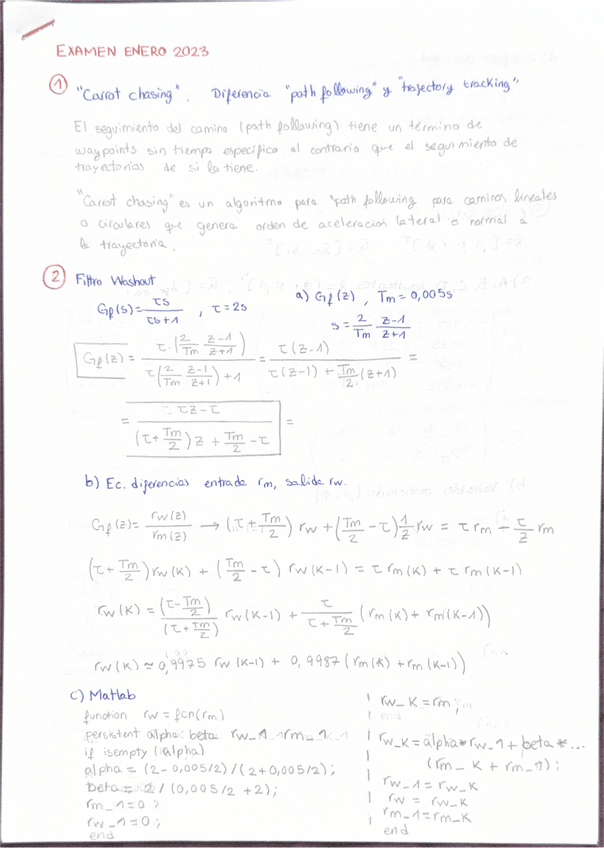 EXAMEN ENERO 2023
① "Carrot chasing". Diferencia "path following" y "trajectory tracking"
El seguimiento del camino (path following) tiene un término de
waypoints sin tiempo específico al contrario que el seguimiento de
trayectorias de si lo tiene.
"Carrot chasing" es un algoritmo para "path following para caminos lineales
o circulares que genera orden de aceleración lateral o normal a
la trayectoria.
② Filtro Washout
Gf(s) = τs / (τs+1) , τ = 2s
a) Gf(z) , Tm = 0,005s
s = 2/Tm (z-1)/(z+1)
Gf(z) = τ·(2/Tm (z-1)/(z+1)) / (τ(2/Tm (z-1)/(z+1)) + 1) = τ(z-1) / (τ(z-1) + Tm/2 (z+1)) =
= (τz - τ) / ((τ + Tm/2)z + Tm/2 - τ) =
b) Ec. diferencias entrada rm, salida rw.
Gf(z) = rw(z)/rm(z) → (τ + Tm/2) rw + (Tm/2 - τ) 1/z rw = τ rm - τ/z rm
(τ + Tm/2) rw(k) + (Tm/2 - τ) rw(k-1) = τ rm(k) + τ rm(k-1)
rw(k) = (τ - Tm/2)/(τ + Tm/2) rw(k-1) + τ/(τ + Tm/2) (rm(k) + rm(k-1))
rw(k) ≃ 0,9975 rw(k-1) + 0,9987 (rm(k) + rm(k-1))
c) Matlab
function rw = fcn(rm)
persistent alpha beta rw_1 rm_1
if isempty(alpha)
alpha = (2-0,005/2)/(2+0,005/2);
beta = 2/(0,005/2+2);
rm_1=0;
rw_1=0;
end
rw_k = rm;
rw_k = alpha*rw_1 + beta*...
(rm_k + rm_1);
rw_1 = rw_k
rw = rw_k
rm_1 = rm_k
end